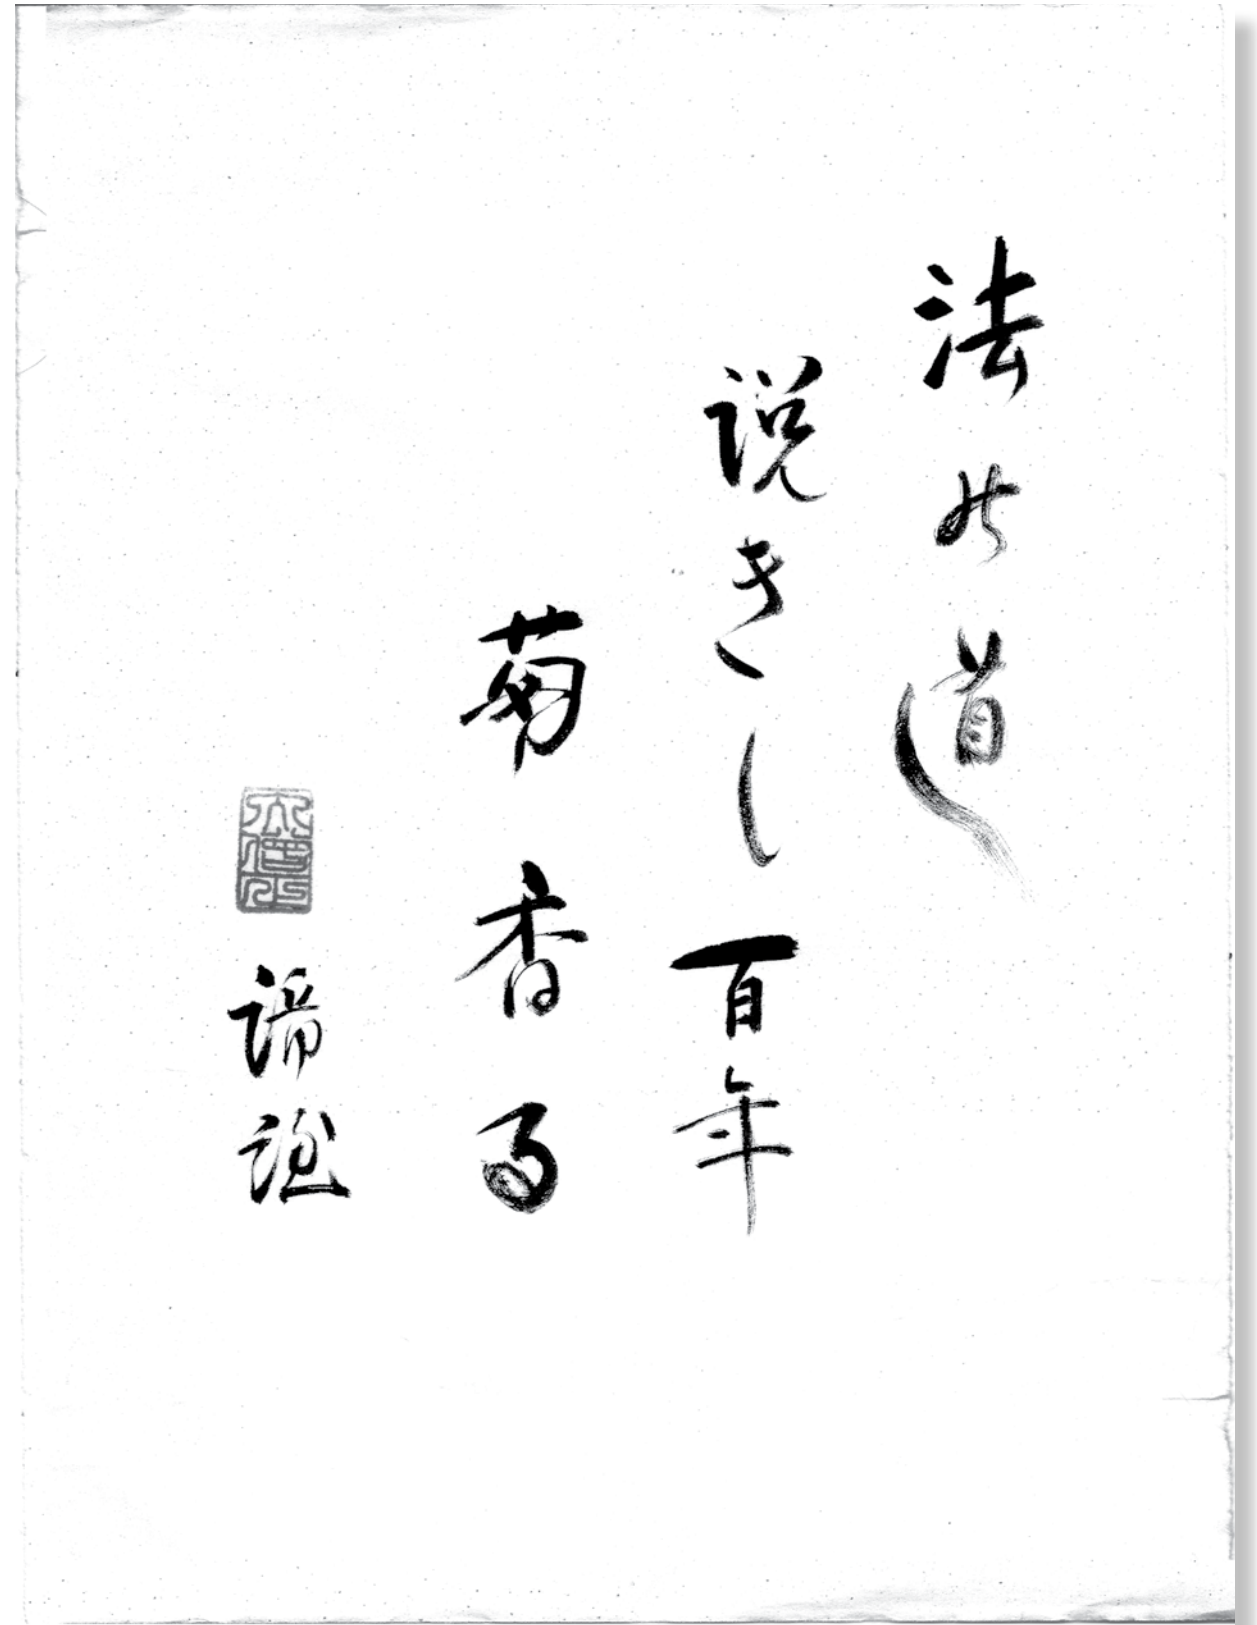 法の道
説きし百年
菊香る
諦